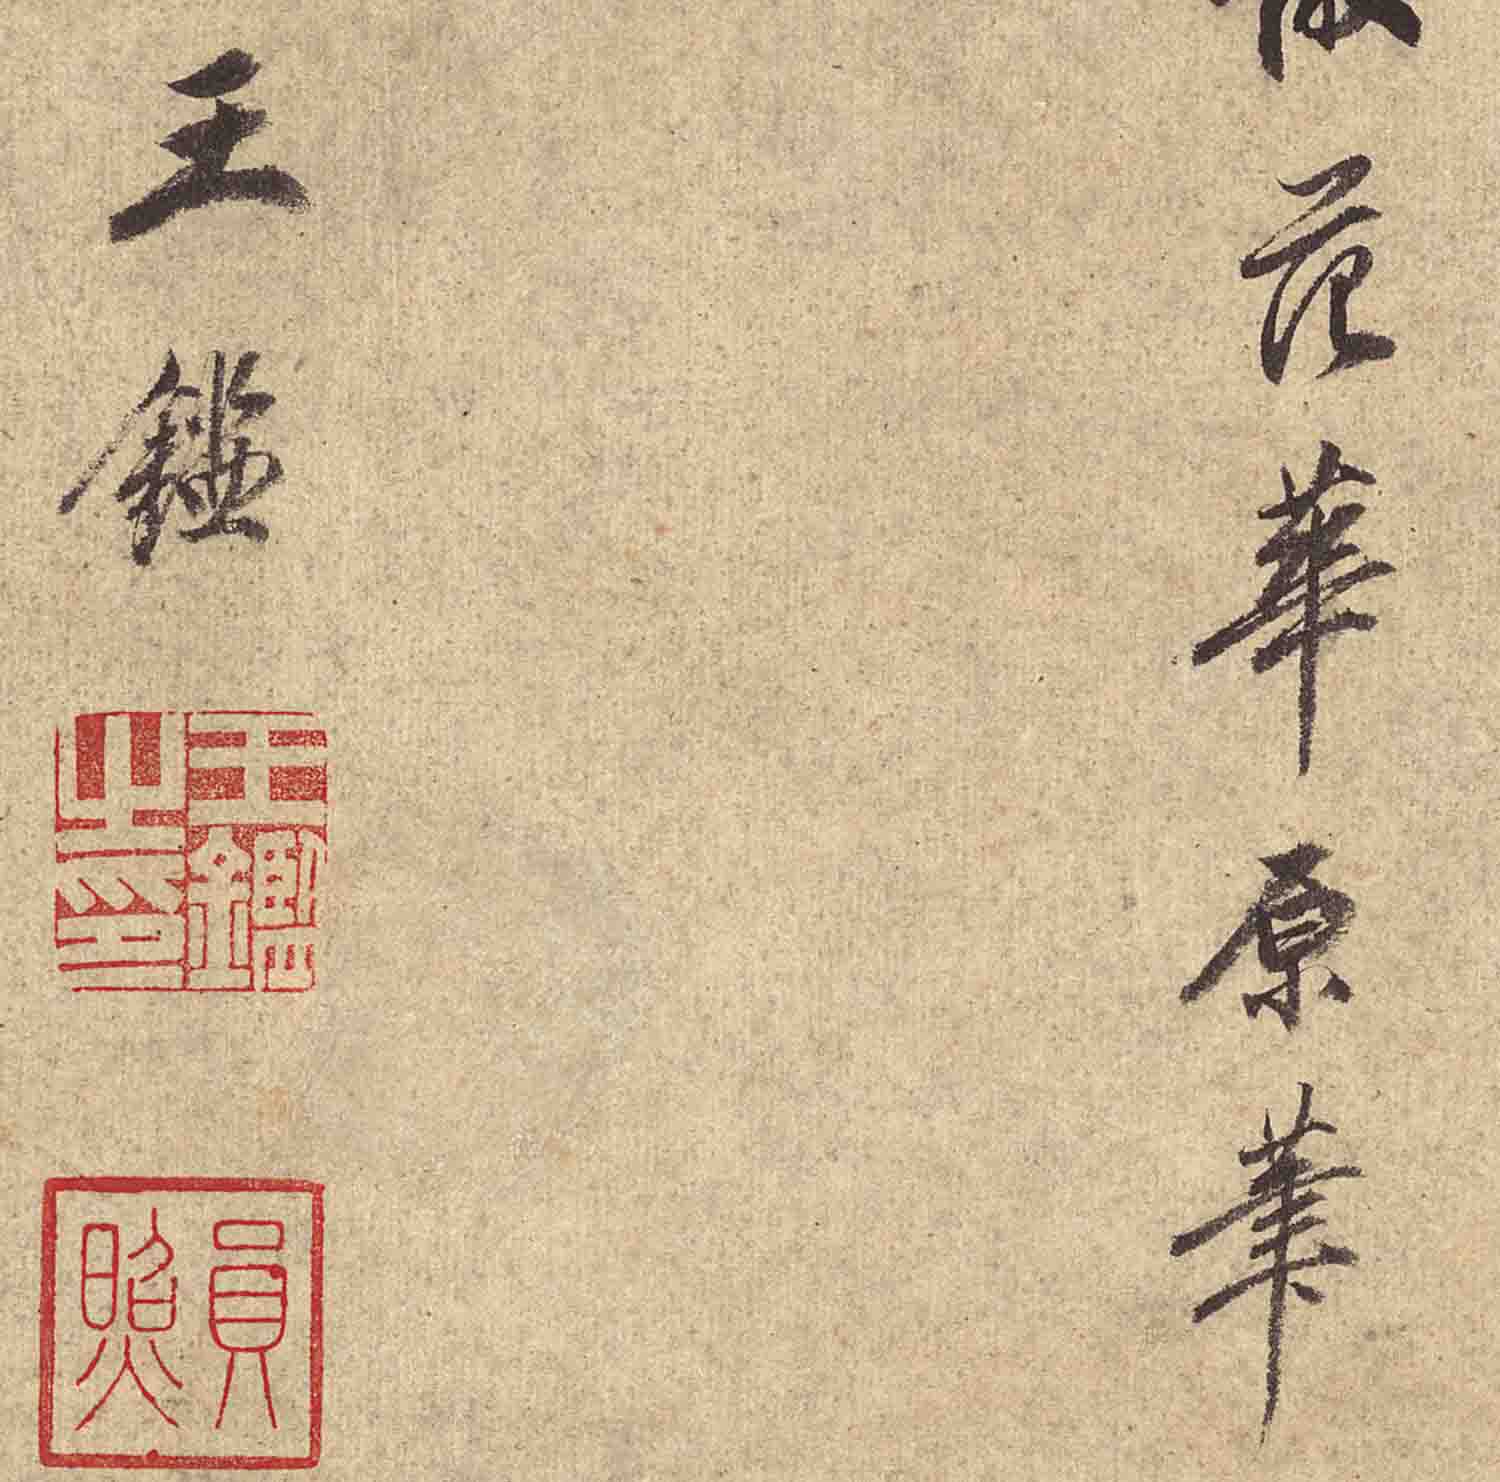 范華原筆
王鑑
王鑑之印
員照